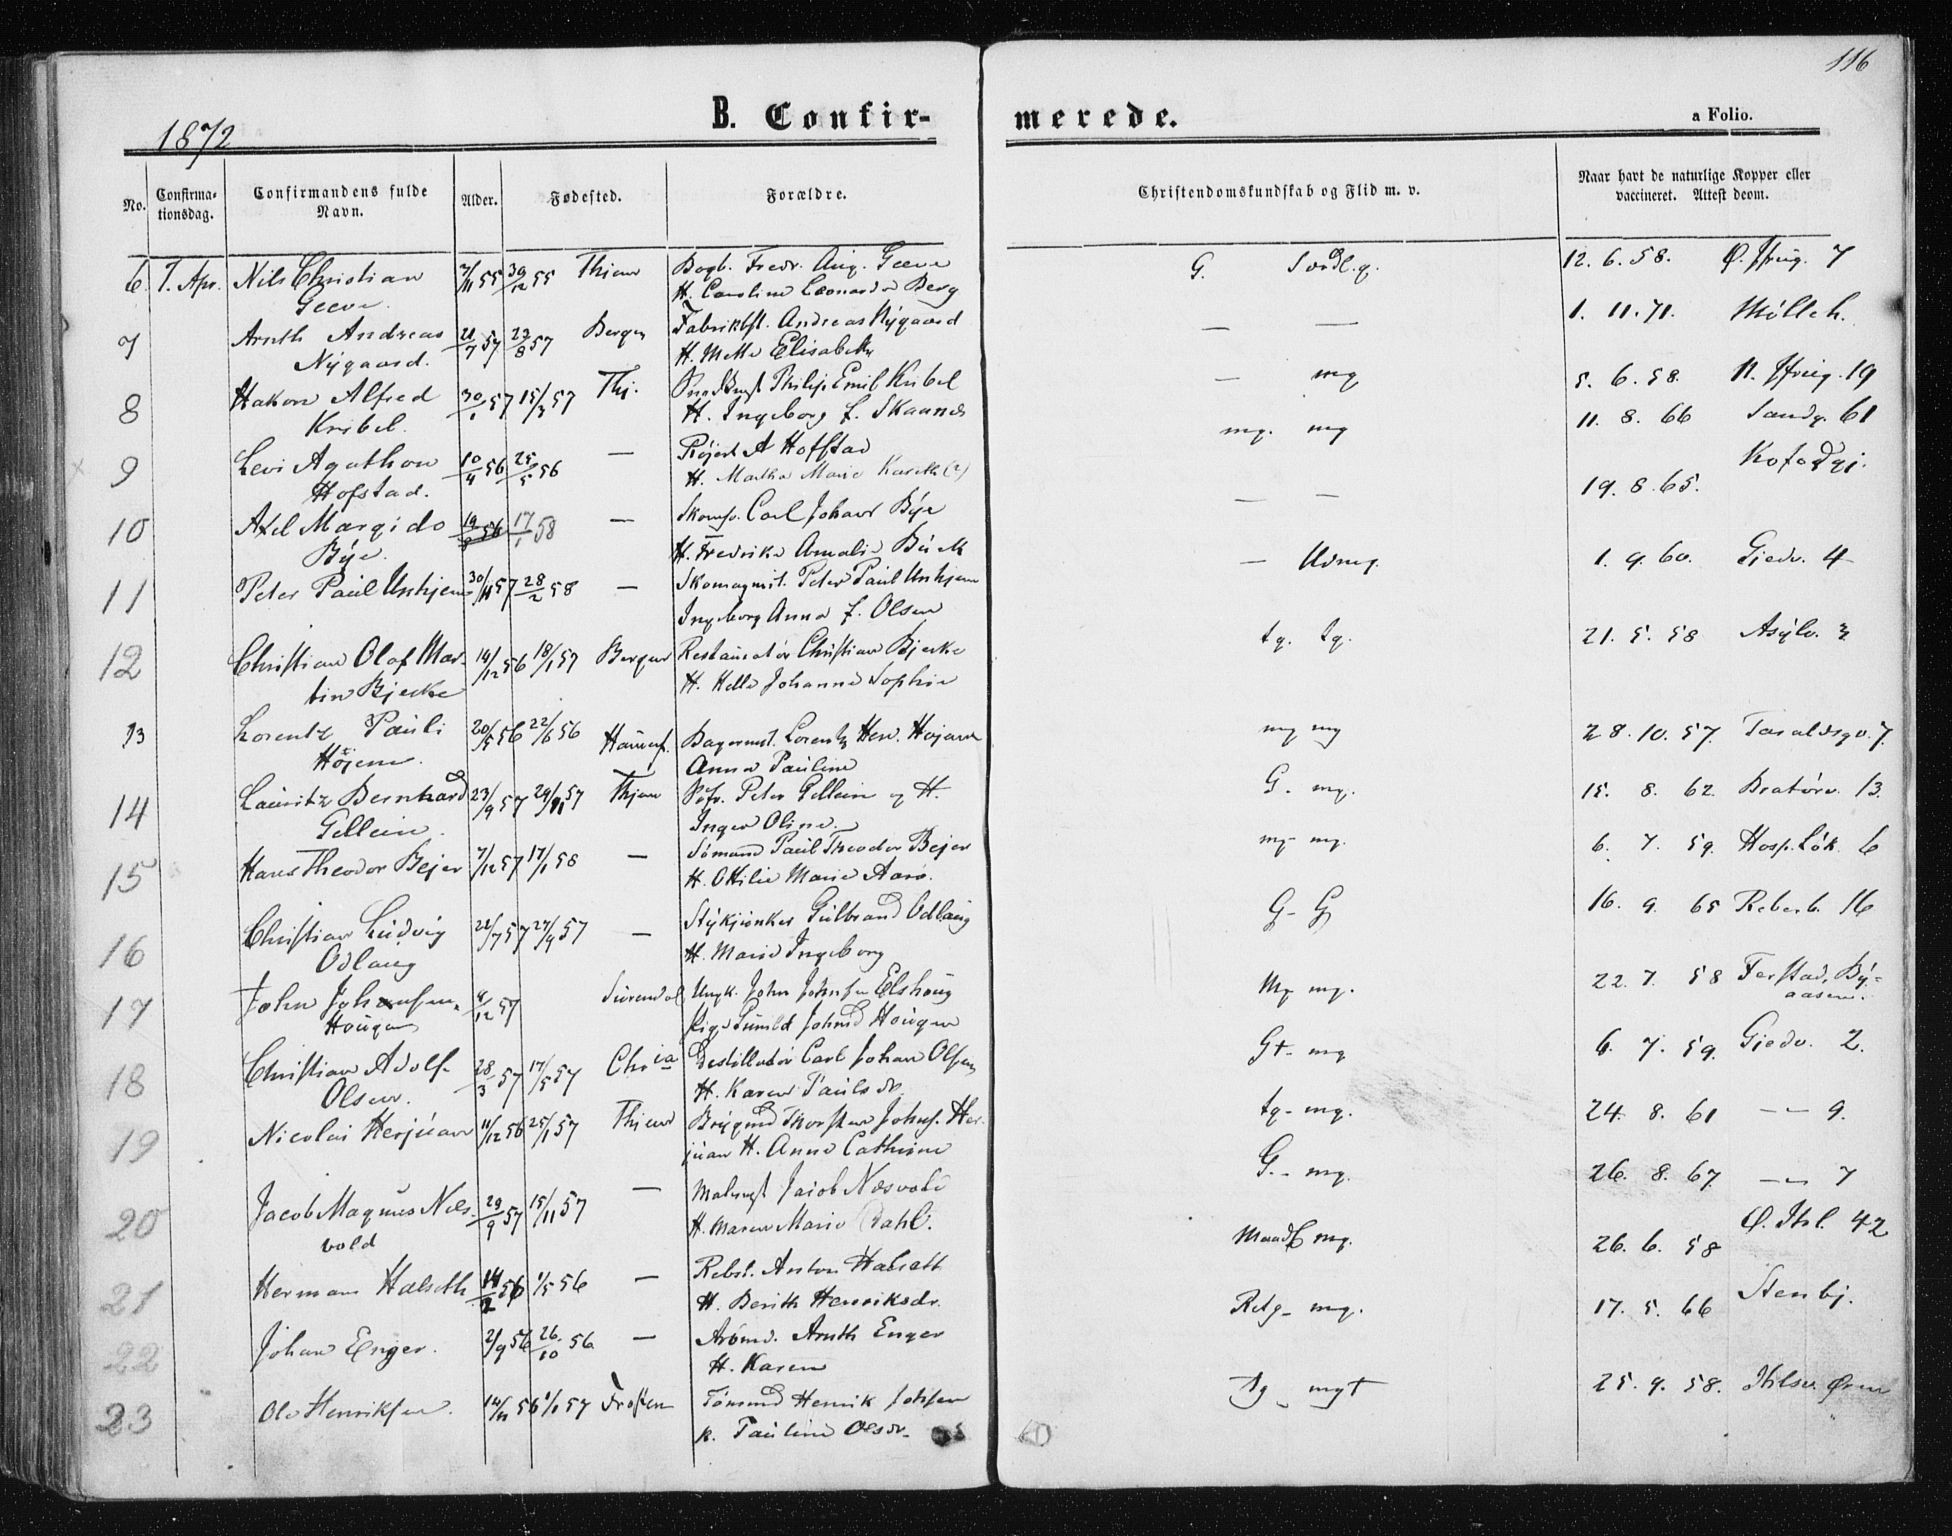 116
1872
B. Confirmerede.
a Folio.
No.
Confirma-
tionsdag.
Confirmandens fulde
Navn.
Alder.
Fødested.
Forældre.
Christendomskundskab og Flid m. v.
Naar havt de naturlige Kopper eller
vaccineret. Attest derom.
6. 7. Apr. Nils Christian 7/11 55 30/12 55 Thjem Bogb. Fredr. Aug. Geeve G. 12. 6. 58. 7
Geeve. H. Caroline Leonarda Berg
7 Arnth Andreas 21/7 57 23/8 57 Bergen Fabrikbst. Andreas Nygaard — — 1. 11. 71. Mölleh.
Nygaard. H. Mette Elisabeth
8 Hakon Alfred 30/1 57 15/3 57 Thj. Philip Emil Kribel — mg 5. 6. 58. 19
Kribel. H. Ingeborg f. Skaanes
9 Levi Agathon 10/4 56 25/5 56 — A Hoffstad mg. mg 11. 8. 66 Sandg. 61
Hofstad. H. Martha Marie
10 Axel Margido 19/8 56 17/1 58 — Skomg. Carl Johan Bye — — 19. 8. 65.
Bye. H. Fredrike Amalie
11 Peter Paul Unhjem 30/11 57 28/2 58 — Skomagmst. Peter Paul Unhjem — Udmg. 1. 9. 60. Giedv. 4
Ingeborg Anna f. Olsen
12 Christian Olaf Mar- 14/12 56 18/1 57 Bergen Restauratör Christian Bjerke tg. tg. 21. 5. 58 Asylv. 3
tin Bjerke H. Helle Johanne Sophie
13 Lorentz Pauli 20/5 56 22/6 56 Bagermst. Lorentz Hojem mg mg 28. 10. 57. Taraldsgv. 7.
Højem. Anna Pauline
14 Lauritz Bernhard 23/9 57 29/11 57 Thjem Peter Gellein og H. G. mg. 15. 8. 62. Bratörv. 13.
Gellein. Inger Oline.
15 Hans Theodor Bejer 7/12 57 17/1 58 — Sömand Paul Theodor Bejer mg mg. 6. 7. 59. Hosp. Lök. 6
H. Ottilie Marie Aarö.
16 Christian Ludvig 22/7 57 27/9 57 — Stykjunker Gulbrand Odlaug G- G 16. 9. 65 Reberb. 16
Odlaug H. Marie Ingeborg
17 John Johnsen 4/12 57 Surendal Ungk. John Johnsen Elshoug Mg mg. 22. 7. 58 Ferstad, By-
Hougen Pige Johnsd Hougen aasen.
18 Christian Adolf 28/3 57 17/5 57 Chria Destillatör Carl Johan Olsen Gt- mg 6. 7. 59. Giedv. 2.
Olsen. H. Karen Paulsdr.
19 Nicolai Herjuan 11/12 56 25/1 57 Thjem Brygmd Thorsten Johns. Her- tg- mg. 24. 8. 61 — 9.
juan H. Anne Cathrine
20 Jacob Magnus Næs- 29/9 57 15/11 57 — Jacob Næsvold G.- mg. 26. 8. 67 — 7
vold H. Maren Marie Dahl.
21 Herman Halseth 14/2 56 1/5 56 — Rebsl. Anton Halseth mg. 26. 6. 58 Ø. Ihl. 42
H. Berith Henriksdr.
22 Johan Enger. 2/9 56 26/10 56 — Arbmd. Arnth Enger Retg- mg. 17. 5. 66 Stenbj.
H. Karen
23 Ole Henriksen. 14/11 56 1/1 57 Frosten Tömmd Henrik Johsen Tg- mgt 25. 9. 58. Ihlsv. Øren
k. Pauline Olsdr.